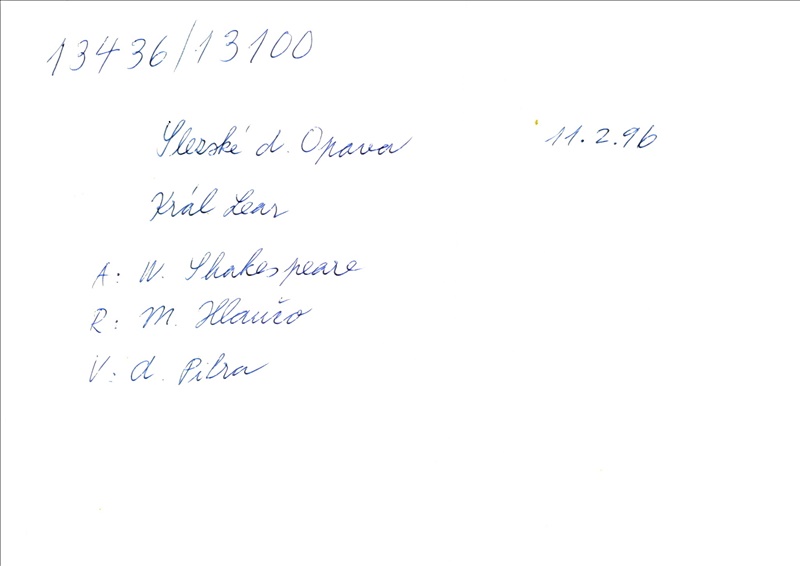 13436/13100
Slezské d. Opava 11.2.96
Král Lear
A: W. Shakespeare
R: M. Hlaučo
V: d. Pitra